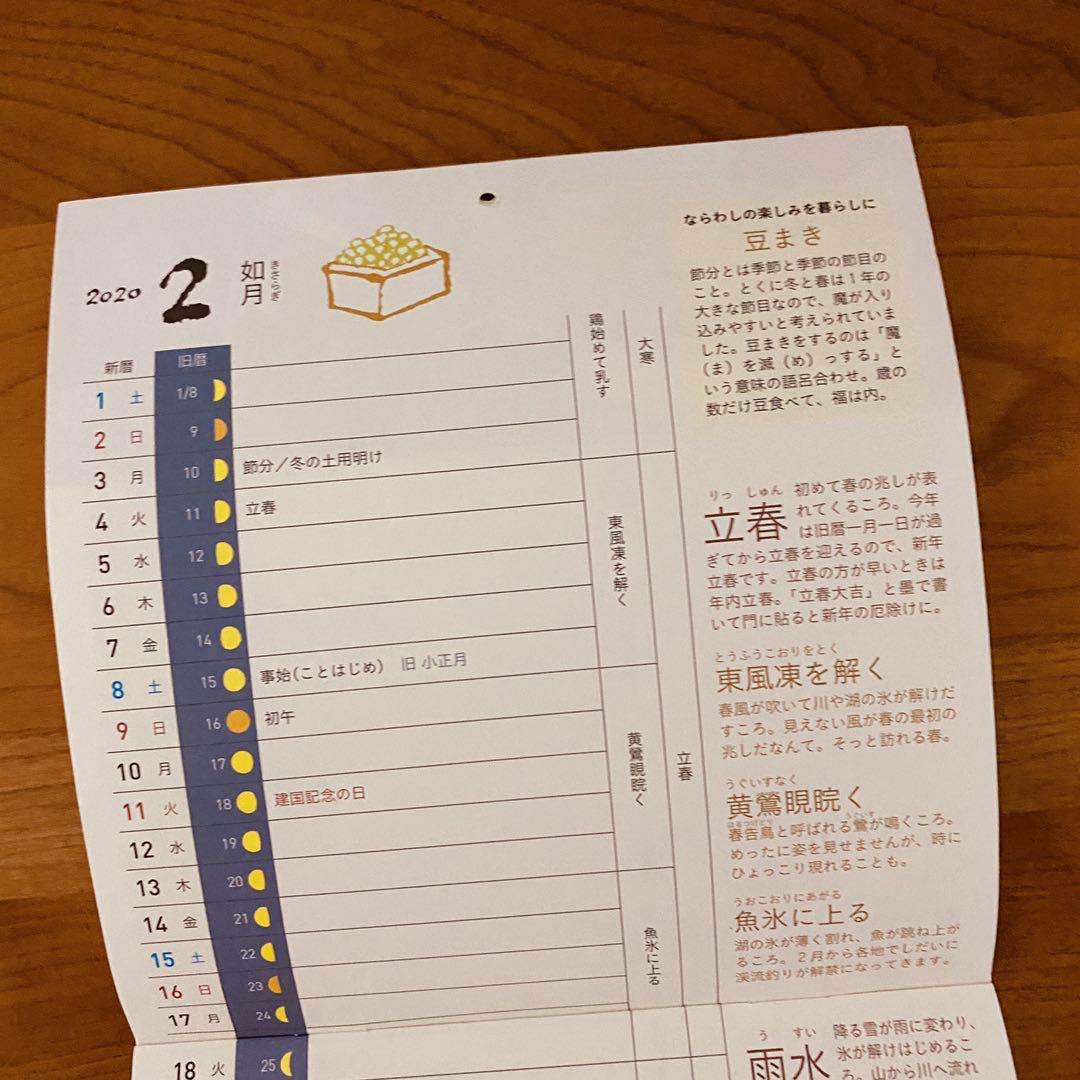 2020 2 如月
きさらぎ
新暦 旧暦
1 土 1/8
2 日 9
3 月 10 節分／冬の土用明け
4 火 11 立春
5 水 12
6 木 13
7 金 14
8 土 15 事始(ことはじめ) 旧 小正月
9 日 16 初午
10 月 17
11 火 18 建国記念の日
12 水 19
13 木 20
14 金 21
15 土 22
16 日 23
17 月 24
18 火 25
鶏始めて乳す
大寒
東風凍を解く
黄鶯睍睆く
魚氷に上る
立春
ならわしの楽しみを暮らしに
豆まき
節分とは季節と季節の節目の
こと。とくに冬と春は１年の
大きな節目なので、魔が入り
込みやすいと考えられていま
した。豆まきをするのは「魔
（ま）を滅（め）っする」と
いう意味の語呂合わせ。歳の
数だけ豆食べて、福は内。
りっ しゅん
立春 初めて春の兆しが表
れてくるころ。今年
は旧暦一月一日が過
ぎてから立春を迎えるので、新年
立春です。立春の方が早いときは
年内立春。「立春大吉」と墨で書
いて門に貼ると新年の厄除けに。
とうふうこおりをとく
東風凍を解く
春風が吹いて川や湖の氷が解けだ
すころ。見えない風が春の最初の
兆しだなんて。そっと訪れる春。
うぐいすなく
黄鶯睍睆く
はるつげどり うぐいす
春告鳥と呼ばれる鶯が鳴くころ。
めったに姿を見せませんが、時に
ひょっこり現れることも。
うおこおりにあがる
魚氷に上る
湖の氷が薄く割れ、魚が跳ね上が
るころ。２月から各地でしだいに
渓流釣りが解禁になってきます。
う すい
雨水 降る雪が雨に変わり、
氷が解けはじめるこ
ろ。山から川へ流れ